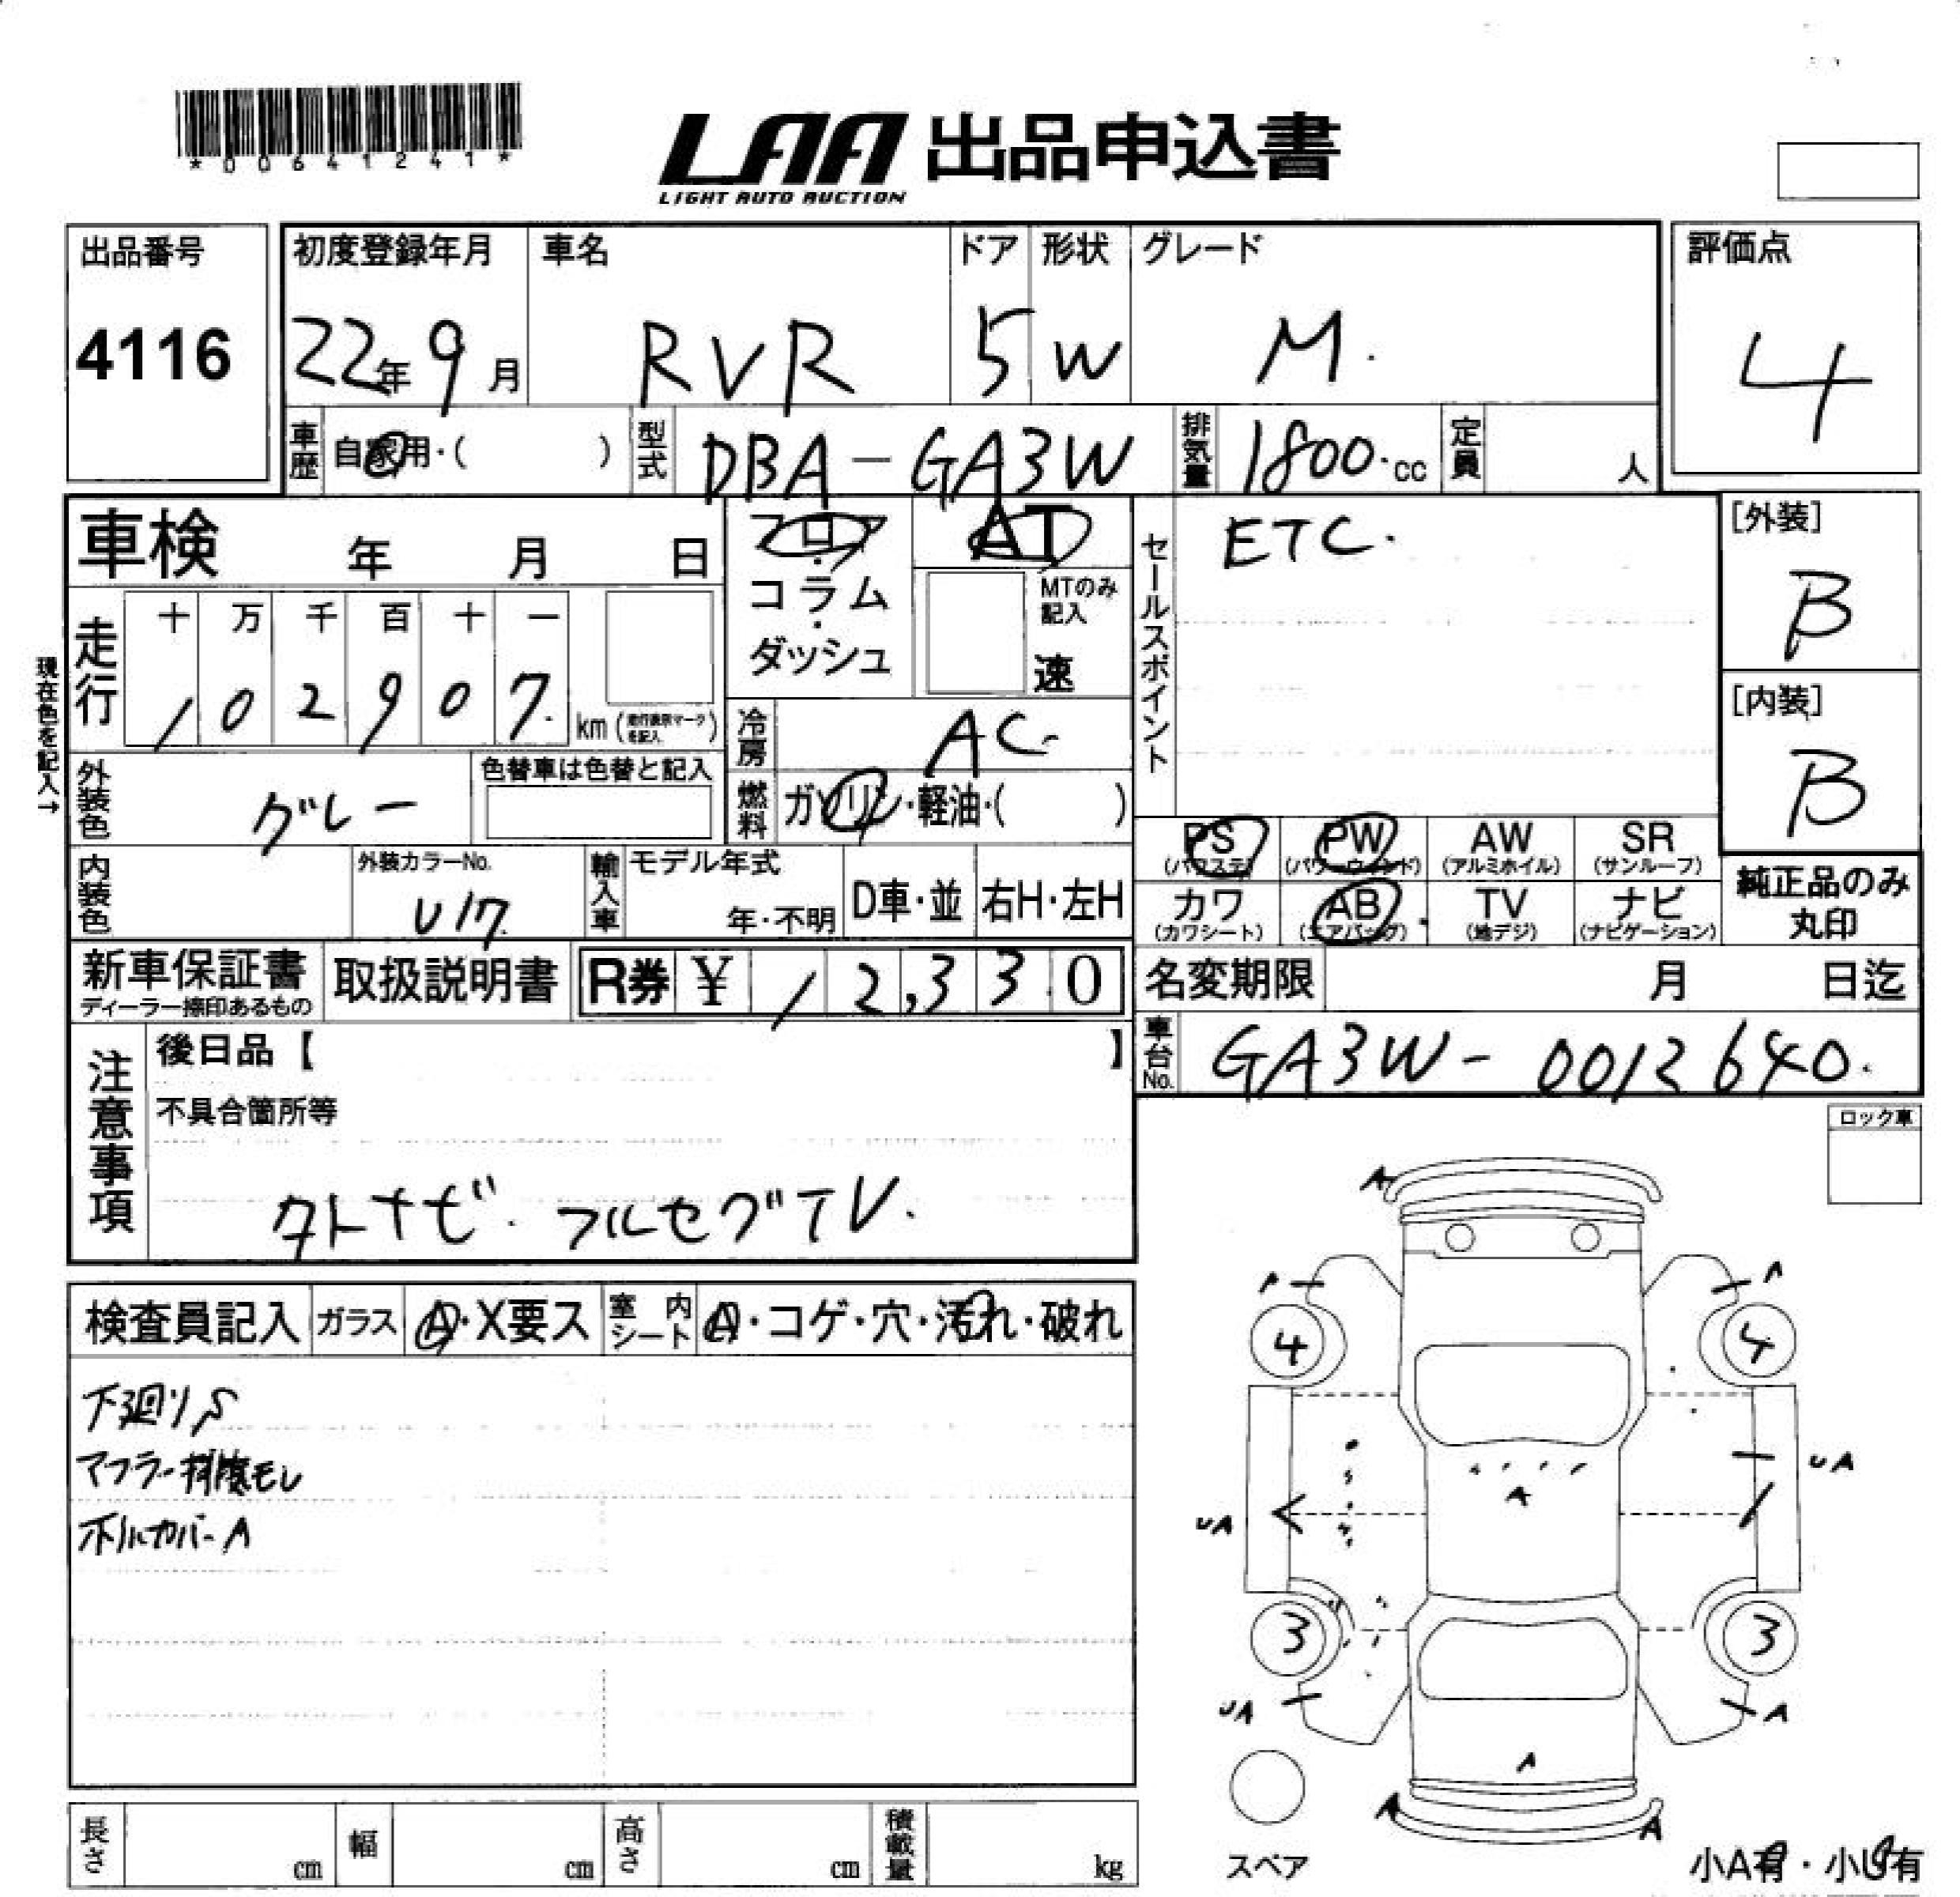 *00641241*
LAA 出品申込書
LIGHT AUTO AUCTION
出品番号
4116
初度登録年月
22年 9月
車名
RVR
ドア
5
形状
W
グレード
M.
評価点
4
車歴 自家用・( )
型式 DBA-GA3W
排気量 1800.cc
定員 人
車検 年 月 日
フロア・コラム・ダッシュ
AT
MTのみ記入
速
セールスポイント
ETC.
[外装]
B
[内装]
B
現在色を記入→
走行
十 万 千 百 十 一
1 0 2 9 0 7.
km (走行表示マークを記入)
冷房 AC.
燃料 ガソリン・軽油・( )
外装色 グレー
色替車は色替と記入
内装色
外装カラーNo.
U17
輸入車
モデル年式
年・不明
D車・並
右H・左H
PS
(パワステ)
PW
(パワーウィンド)
AW
(アルミホイル)
SR
(サンルーフ)
カワ
(カワシート)
AB
(エアバッグ)
TV
(地デジ)
ナビ
(ナビゲーション)
純正品のみ
丸印
新車保証書
ディーラー捺印あるもの
取扱説明書
R券 ¥ 12,330
名変期限 月 日迄
車台No. GA3W-0012640.
注意事項
後日品【 】
不具合箇所等
タトナビ. フルセグTV.
ロック車
検査員記入
ガラス A・X要ス
室内シート A・コゲ・穴・汚れ・破れ
下廻りS
マフラー排気モレ
ホイルカバーA
A
A A
4 4
UA
A
UA
3 3
UA A
A
A A
スペア
小A有・小U有
長さ cm
幅 cm
高さ cm
積載量 kg